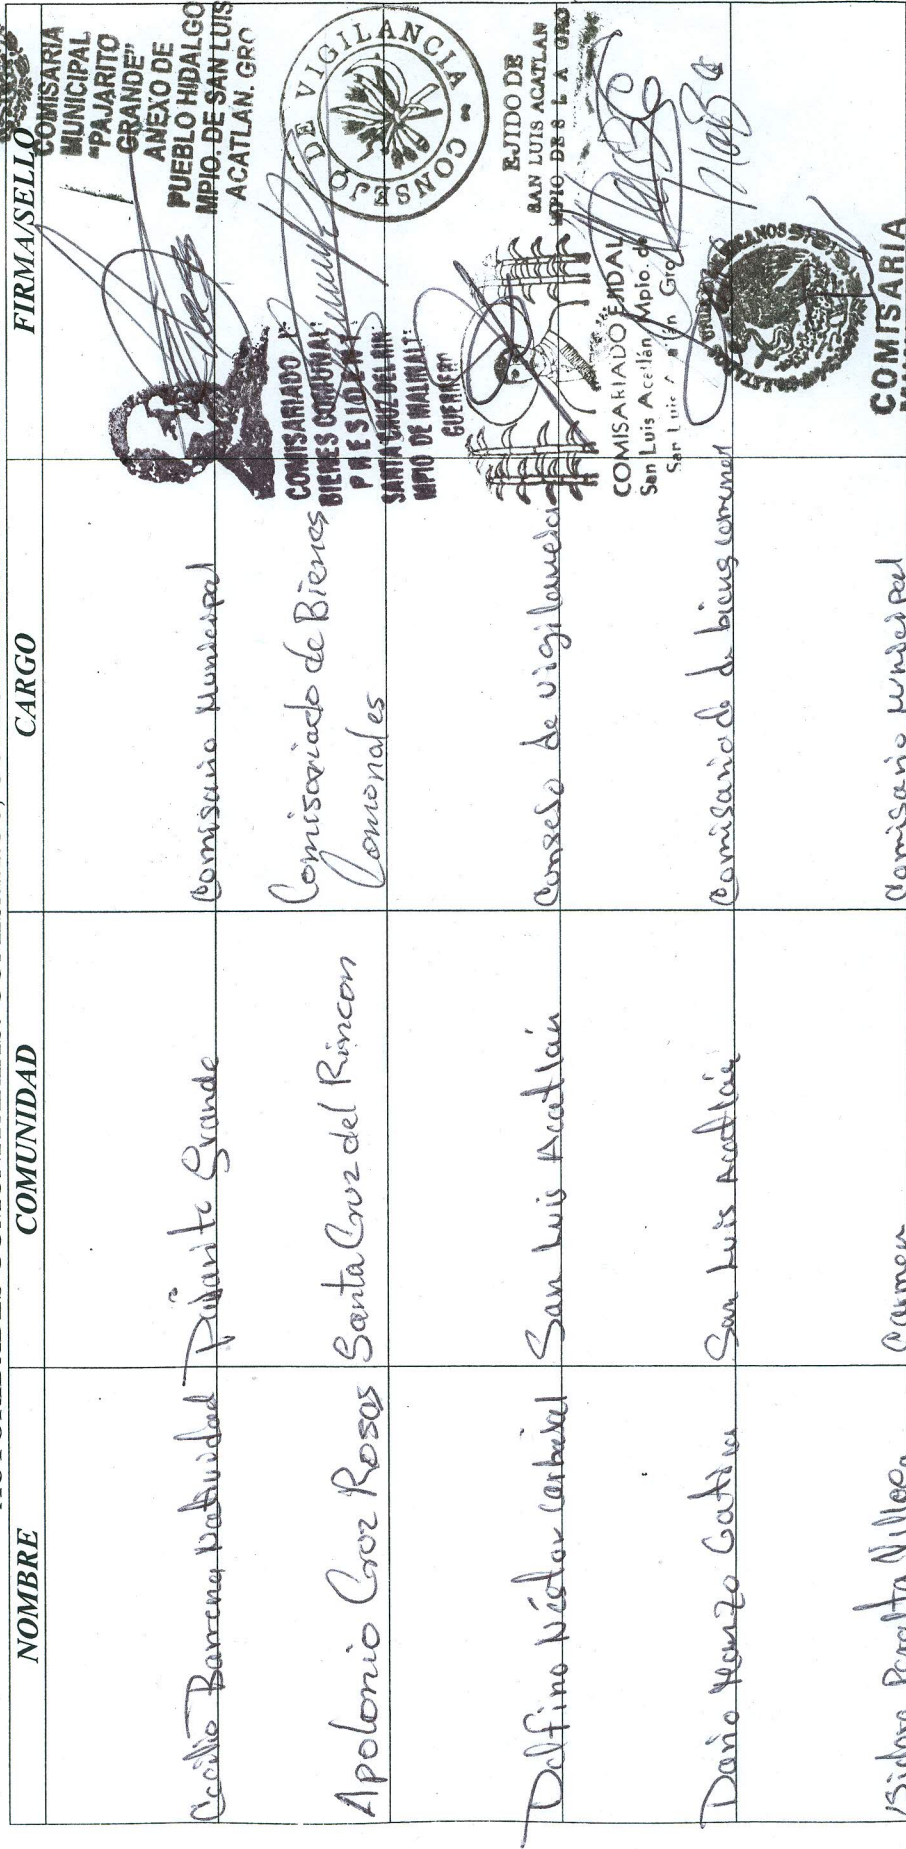 NOMBRE
COMUNIDAD
CARGO
FIRMA/SELLO
Cecilio Barrena Natividad
Pajarito Grande
Comisario Municipal
COMISARIA
MUNICIPAL
"PAJARITO
GRANDE"
ANEXO DE
PUEBLO HIDALGO
MPIO. DE SAN LUIS
ACATLAN. GRO
Apolonio Croz Rosas
Santa Cruz del Rincon
Comisariado de Bienes
Comonales
COMISARIADO
BIENES COMUNAL
PRESIDENT
SANTA CRUZ DEL RIN
MPIO DE MALINALT
GUERRERO
CONSEJO DE VIGILANCIA
Delfino Néstor Carbajal
San Luis Acatlán
Consejo de vigilancia
EJIDO DE
SAN LUIS ACATLAN
MPIO DE S L A GRO
Dario Manzo
San Luis Acatlán
Comisario de bienes comunes
COMISARIADO EJIDAL
San Luis Acatlán, Mpio. de
San Luis Gro
Isidoro Peralta
Carmen
Comisario Municipal
COMISARIA